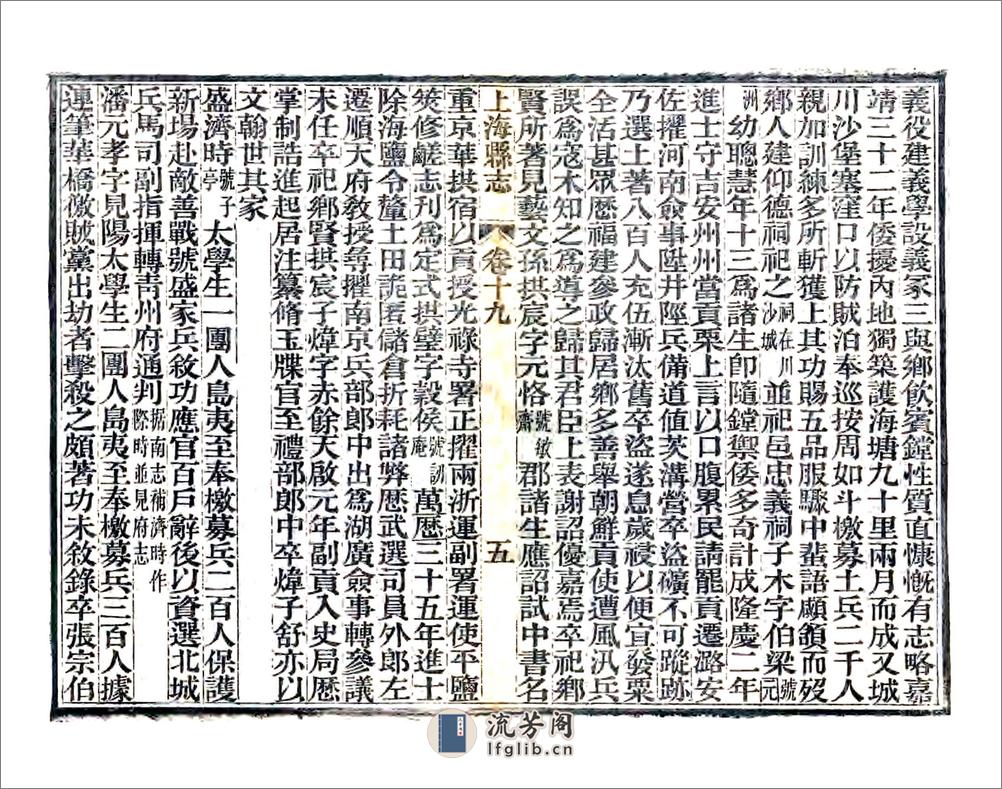 義役建義學設義冢三與鄉飲賓鏜性質直慷慨有志略嘉
靖三十二年倭擾內地獨築護海塘九十里兩月而成又城
川沙堡塞窪口以防賊泊奉巡按周如斗檄募土兵二千人
親加訓練多所斬獲上其功賜五品服驟中蜚語顑頷而歿
鄉人建仰德祠祀之祠在川沙城並祀邑忠義祠子木字伯梁號元
洲幼聰慧年十三為諸生卽隨鏜禦倭多奇計成隆慶二年
進士守吉安州州當貢粟上言以口腹累民請罷貢遷潞安
佐擢河南僉事陞井陘兵備道值茨溝營卒盜礦不可蹤跡
乃選土著八百人充伍漸汰舊卒盜遂息歲祲以便宜發粟
全活甚眾歷福建參政歸居鄉多善舉朝鮮貢使遭風汛兵
誤為寇木知之為導之歸其君臣上表謝詔優嘉焉卒祀鄉
賢所著見藝文孫拱宸字元恪號敏齋郡諸生應詔試中書名
上海縣志 卷十九 五
重京華拱宿以貢授光祿寺署正擢兩浙運副署運使平鹽
筴修鹺志刊為定式拱璧字穀侯號訒庵萬歷三十五年進士
除海鹽令釐土田詭匿儲倉折耗諸弊歷武選司員外郎左
遷順天府教授尋擢南京兵部郎中出為湖廣僉事轉參議
未任卒祀鄉賢拱宸子煒字赤餘天啟元年副貢入史局歷
掌制誥進起居注纂脩玉牒官至禮部郎中卒煒子舒亦以
文翰世其家
盛濟時號子亭太學生一團人島夷至奉檄募兵二百人保護
新場赴敵善戰號盛家兵敘功應官百戶辭後以資選北城
兵馬司副指揮轉青州府通判据南志補濟時作際時並見府志
潘元孝字見陽太學生二團人島夷至奉檄募兵三百人據
連筆華橋儌賊黨出劫者擊殺之頗著功未敘錄卒張宗伯
流芳阁
lfglib.cn